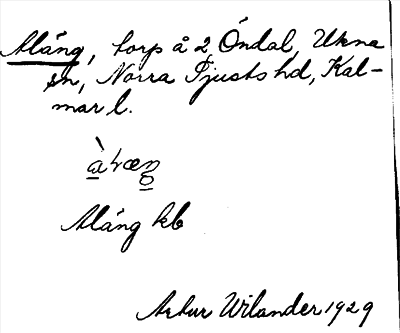 Aläng, torp å 2 Öndal, Ukna
sn, Norra Tjusts hd, Kal-
mar l.
Aläng kb
Artur Wilander 1929